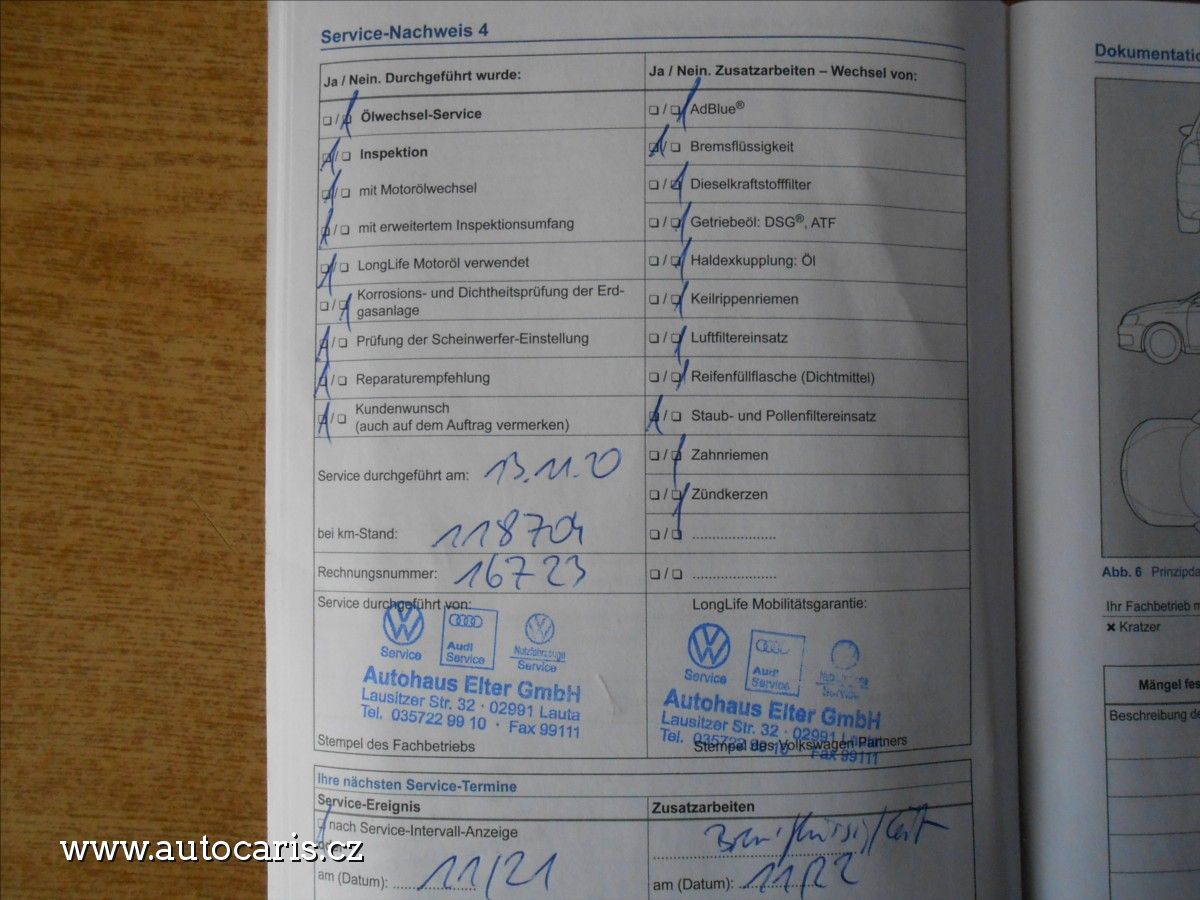 Service-Nachweis 4
Ja / Nein. Durchgeführt wurde:
❏ / ❏ Ölwechsel-Service
❏ / ❏ Inspektion
❏ / ❏ mit Motorölwechsel
❏ / ❏ mit erweitertem Inspektionsumfang
❏ / ❏ LongLife Motoröl verwendet
❏ / ❏ Korrosions- und Dichtheitsprüfung der Erd-
gasanlage
❏ / ❏ Prüfung der Scheinwerfer-Einstellung
❏ / ❏ Reparaturempfehlung
❏ / ❏ Kundenwunsch
(auch auf dem Auftrag vermerken)
Service durchgeführt am: 13.11.20
bei km-Stand: 118704
Rechnungsnummer: 16723
Service durchgeführt von:
Service
Audi
Service
Nutzfahrzeuge
Service
Autohaus Elter GmbH
Lausitzer Str. 32 · 02991 Lauta
Tel. 035722 99 10 · Fax 99111
Stempel des Fachbetriebs
Ja / Nein. Zusatzarbeiten – Wechsel von:
❏ / ❏ AdBlue®
❏ / ❏ Bremsflüssigkeit
❏ / ❏ Dieselkraftstofffilter
❏ / ❏ Getriebeöl: DSG®, ATF
❏ / ❏ Haldexkupplung: Öl
❏ / ❏ Keilrippenriemen
❏ / ❏ Luftfiltereinsatz
❏ / ❏ Reifenfüllflasche (Dichtmittel)
❏ / ❏ Staub- und Pollenfiltereinsatz
❏ / ❏ Zahnriemen
❏ / ❏ Zündkerzen
❏ / ❏ .....................
❏ / ❏ .....................
LongLife Mobilitätsgarantie:
Service
Audi
Service
Service
Autohaus Elter GmbH
Lausitzer Str. 32 · 02991 Lauta
Tel. 035722 99 10 · Fax 99111
Stempel des Volkswagen Partners
Ihre nächsten Service-Termine
Service-Ereignis
❏ nach Service-Intervall-Anzeige
am (Datum): 11/21
Zusatzarbeiten
Bremsflüssigkeit
am (Datum): 11/22
Dokumentatio
Abb. 6 Prinzipda
Ihr Fachbetrieb m
✖ Kratzer
Mängel fes
Beschreibung de
www.autocaris.cz